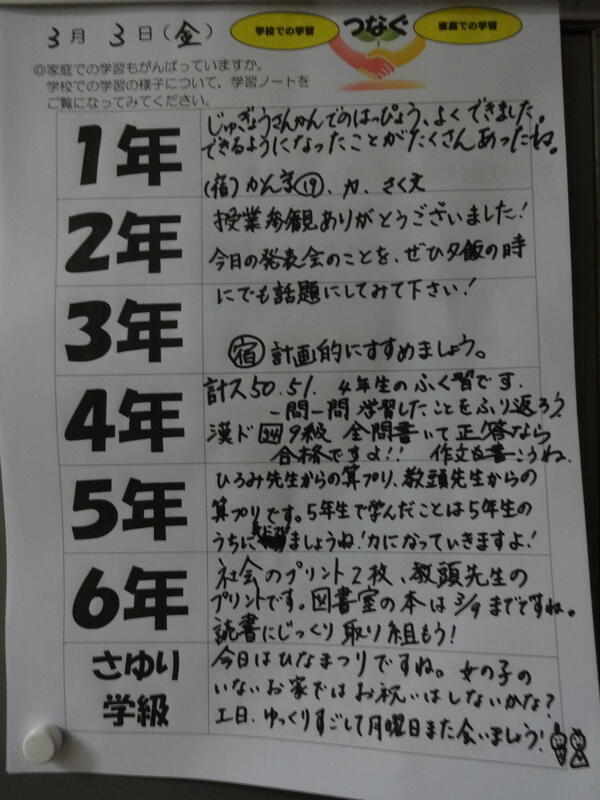 3月 3日(金)
学校での学習 つなぐ 家庭での学習
◎家庭での学習もがんばっていますか。
学校での学習の様子について、学習ノートを
ご覧になってみてください。
1年
じゅぎょうさんかんでのはっぴょう、よくできました。
できるようになったことがたくさんあったね。
(宿)かんき⑲、カ、さく文
2年
授業参観ありがとうございました!
今日の発表会のことを、ぜひ夕飯の時
3年
にでも話題にしてみて下さい!
宿 計画的にすすめましょう。
4年
計ス50.51. 4年生のふく習です.
一問一問 学習したことをふり返ろう
漢ド 24 9級 全問書いて正答なら
合格ですよ!! 作文も書こうね.
5年
ひろみ先生からの算プリ、教頭先生からの
算プリです。5年生で学んだことは5年生の
うちに ましょうね!力になっていきますよ!
6年
社会のプリント2枚、教頭先生の
プリントです。図書室の本は3/9までですね。
読書にじっくり取り組もう!
さゆり
学級
今日はひなまつりですね。女の子の
いないお家ではお祝いはしないかな?
土日、ゆっくりすごして月曜日また会いましょう!